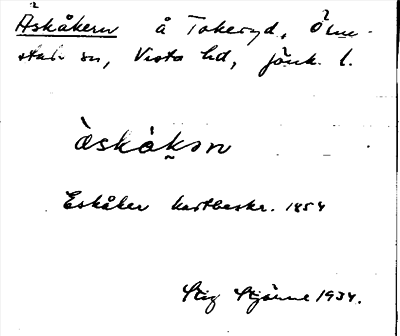 Äskåkern å Tokeryd, Ölm-
stads sn, Vista hd, Jönk. l.
àskåkαn
Eskåker kartbeskr. 1854
Stig Stjärne 1934.